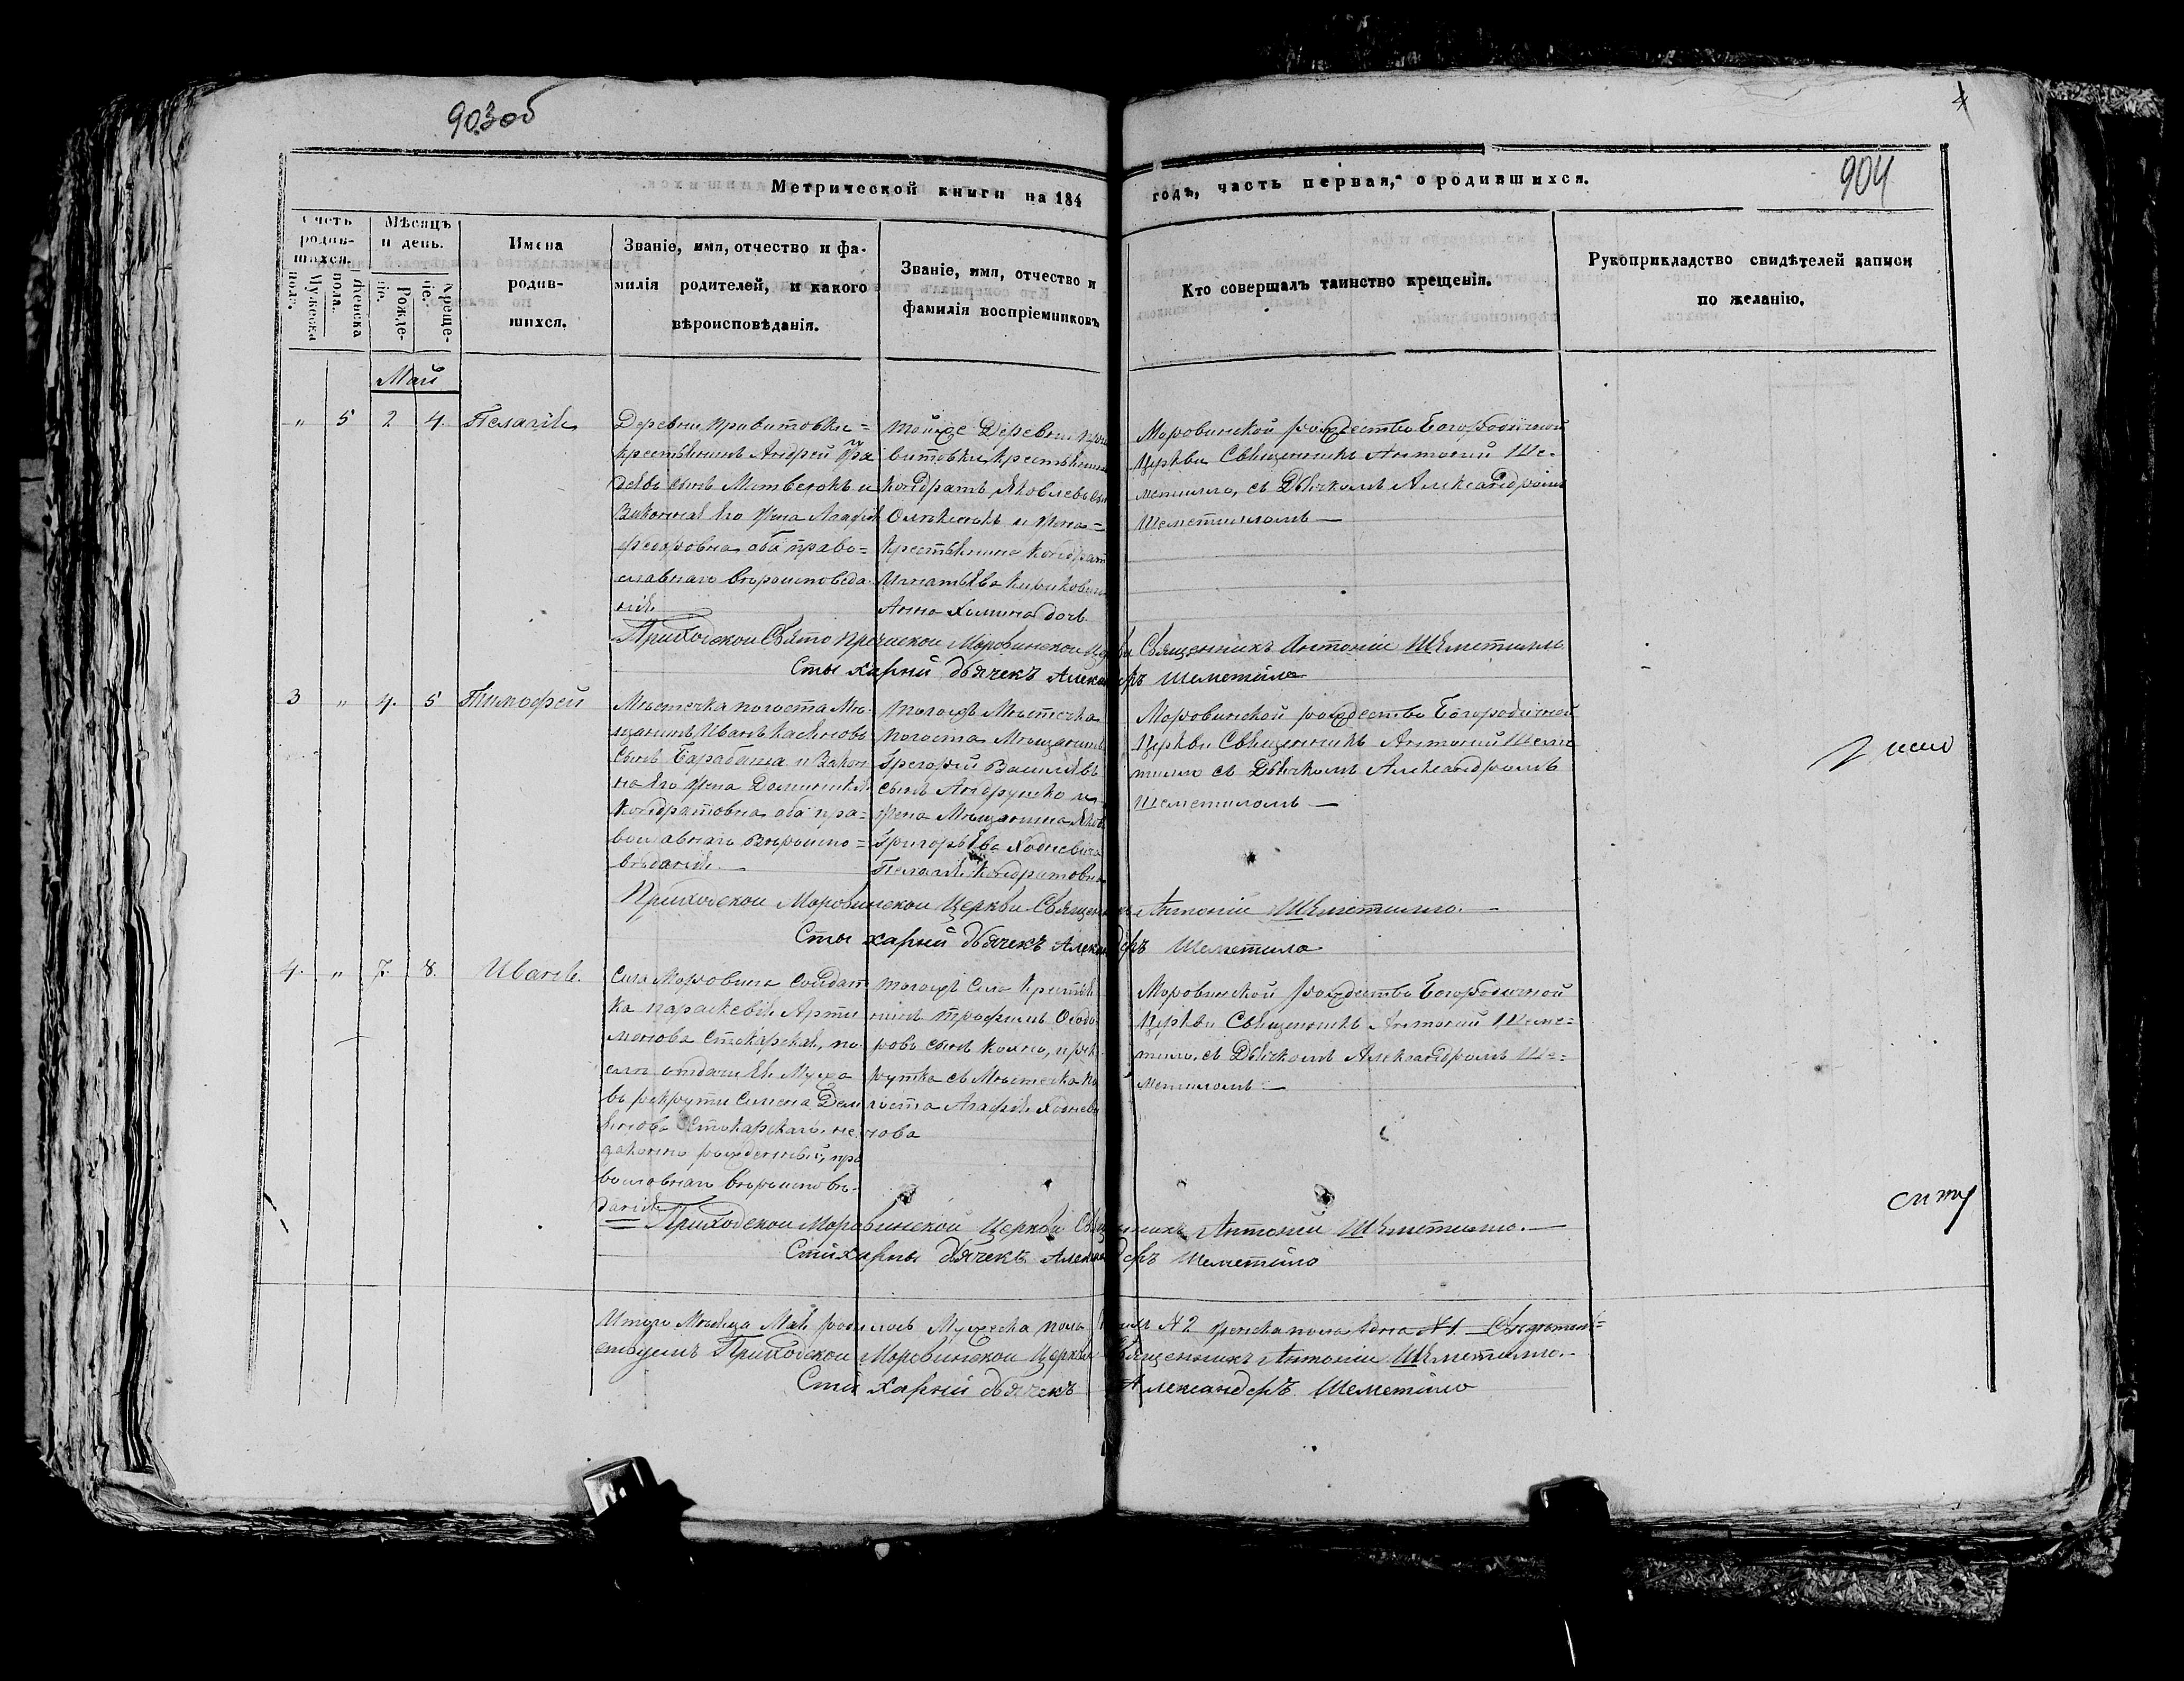 903об
4
904
Метрической книги на 184 годъ, часть первая, о родившихся.
Счетъ родив-шихся.
Мужеска пола.
Женска пола.
Мѣсяцъ и день.
Рожде-нія.
Креще-нія.
Имена
родив-
шихся.
Званіе, имя, отчество и фа-
милія родителей, и какого
вѣроисповѣданія.
Званіе, имя, отчество и
фамилія воспріемниковъ
Кто совершалъ таинство крещенія.
Рукоприкладство свидѣтелей записи
по желанію.
Май
" 5 2 4. Пелагія
Деревни Привитовки=
крестьянинъ Андрей Фа
дѣевъ сынъ Матвеюкъ и
Законная его жена Агафія
Феодоровна оба право=
славнаго вѣроисповѣда
нія
тойже Деревни при
витовки крестьянинъ
Кондратъ Яковлевъ сын
и жена=
крестьянина Кондрат
Игнатьева
Анна дочь
Моровинской рождество Богородичной
Церкви Священникъ Антоній Ше-
метилло, съ Дьячкомъ Александромъ
Шеметиломъ—
Приходской Свято Пречиской Моровинской Церкви Священникъ Антоній Шеметилло.
Стыхарный дьячекъ Александръ Шеметило
3 " 4. 5 Тимофей
Мѣстечка погоста Мѣ-
щанинъ Иванъ Касяновъ
сынъ Барабаша и Закон
на его жена Домникія
Кондратовна оба пра=
вославнаго вѣроиспо=
вѣданія.—
тогожъ Мѣстечка
погоста Мѣщанинъ
Грегорій Василѣвъ
сынъ Андрушко и
жена Мѣщанина Яков
Григорьева Ходневича
Пелагія Кондратовна
Моровинской рождество Богородичной
Церкви Священникъ Антоній Шеме
тилло съ Дьячкомъ Александромъ
Шеметиломъ—
Приходской Моровинской Церкви Священникъ Антоній Шеметилло.—
Стыхарный дьячекъ Александръ Шеметило
4. " 7. 8. Иванъ.
Села Моровина Солдат
ка параскевія Арти
менова Стокарская, по
слѣ отдачи ея Мужа
въ рекруты Симена Дем
янова Стокарскаго, не
законно рожденный, пра
вославнаго вѣроисповѣ-
данія
тогожъ Села крестья
нинъ Трофимъ Феодо
ровъ сынъ рек
рутка съ Мѣстечка по
госта Агафія Ходневи
нова
Моровинской рождество Богородичной
Церкви Священникъ Антоній Шеме=
тило, съ Дьячкомъ Александромъ Ше=
метиломъ—
Приходской Моровинской Церкви Священникъ Антоній Шеметилло.—
Стихарны дьячекъ Александеръ Шеметило
Итого Мѣсяца Мая родилось Мужеска пола № 2 женска пола Одна № 1. Свидѣтель=
ствуемъ Приходской Моровинской Церкви Священникъ Антоній Шеметилло.—
Стихарный дьячекъ Александеръ Шеметило